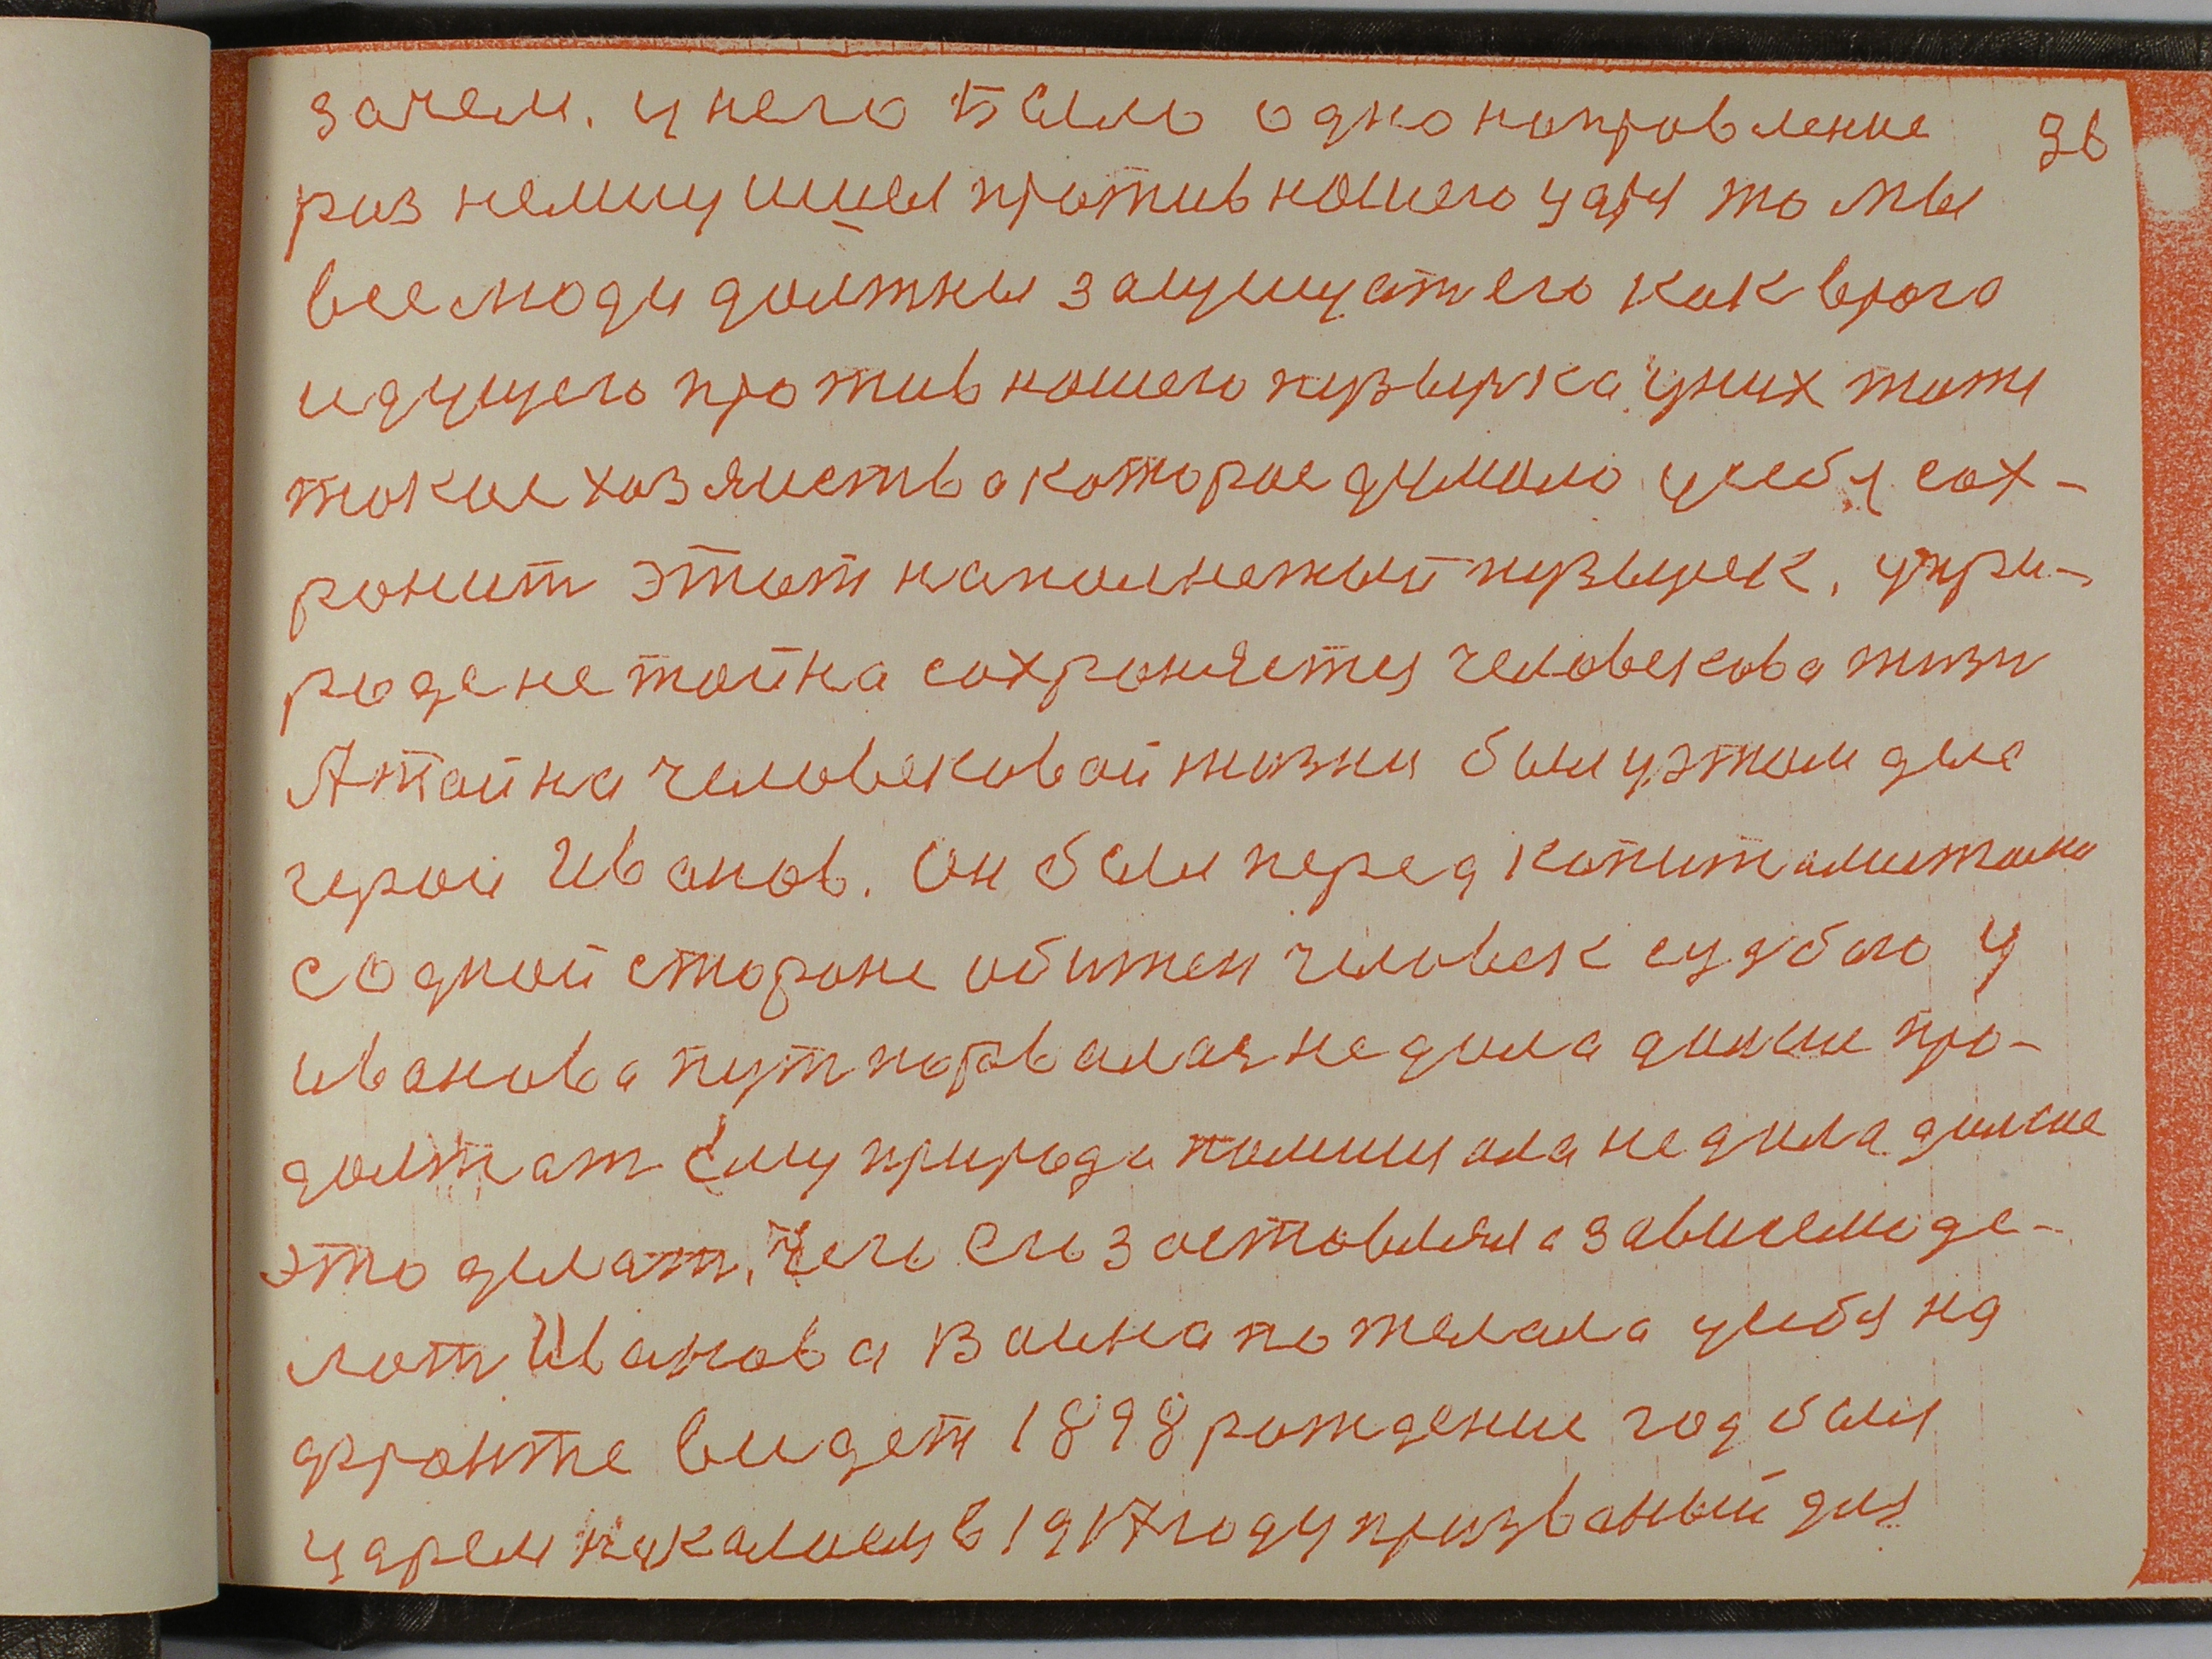 зачем. у него было одно направление 96
раз немцу шшел против нашего царя то мы
все люди должны защищат его как врага
идущего против нашего пузырка. у них тоже
токие хозяиство которое думало у себя сох-
ранит этот наполненый пузырек, у при-
роде не тайна сохраняется человекова жизн
А тайна человековай жизни был у этом деле
герой Иванов. Он был перед капиталистами
с одной стороне обижен человек судбаю у
иванова пут порвалая не дала далше про-
должат Ему природа помишала не дала далше
это делат. Чего Его заставляла зависемо де-
лат Иванова Воина пожелала у себя на
фронте видет 1898 рождение год был
царем Николаем в 1917 году призваный для